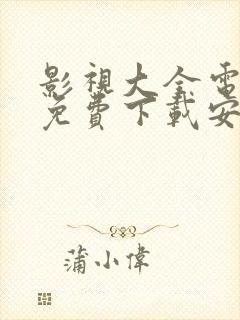 影視大全電
免費下載安
蒲小偉